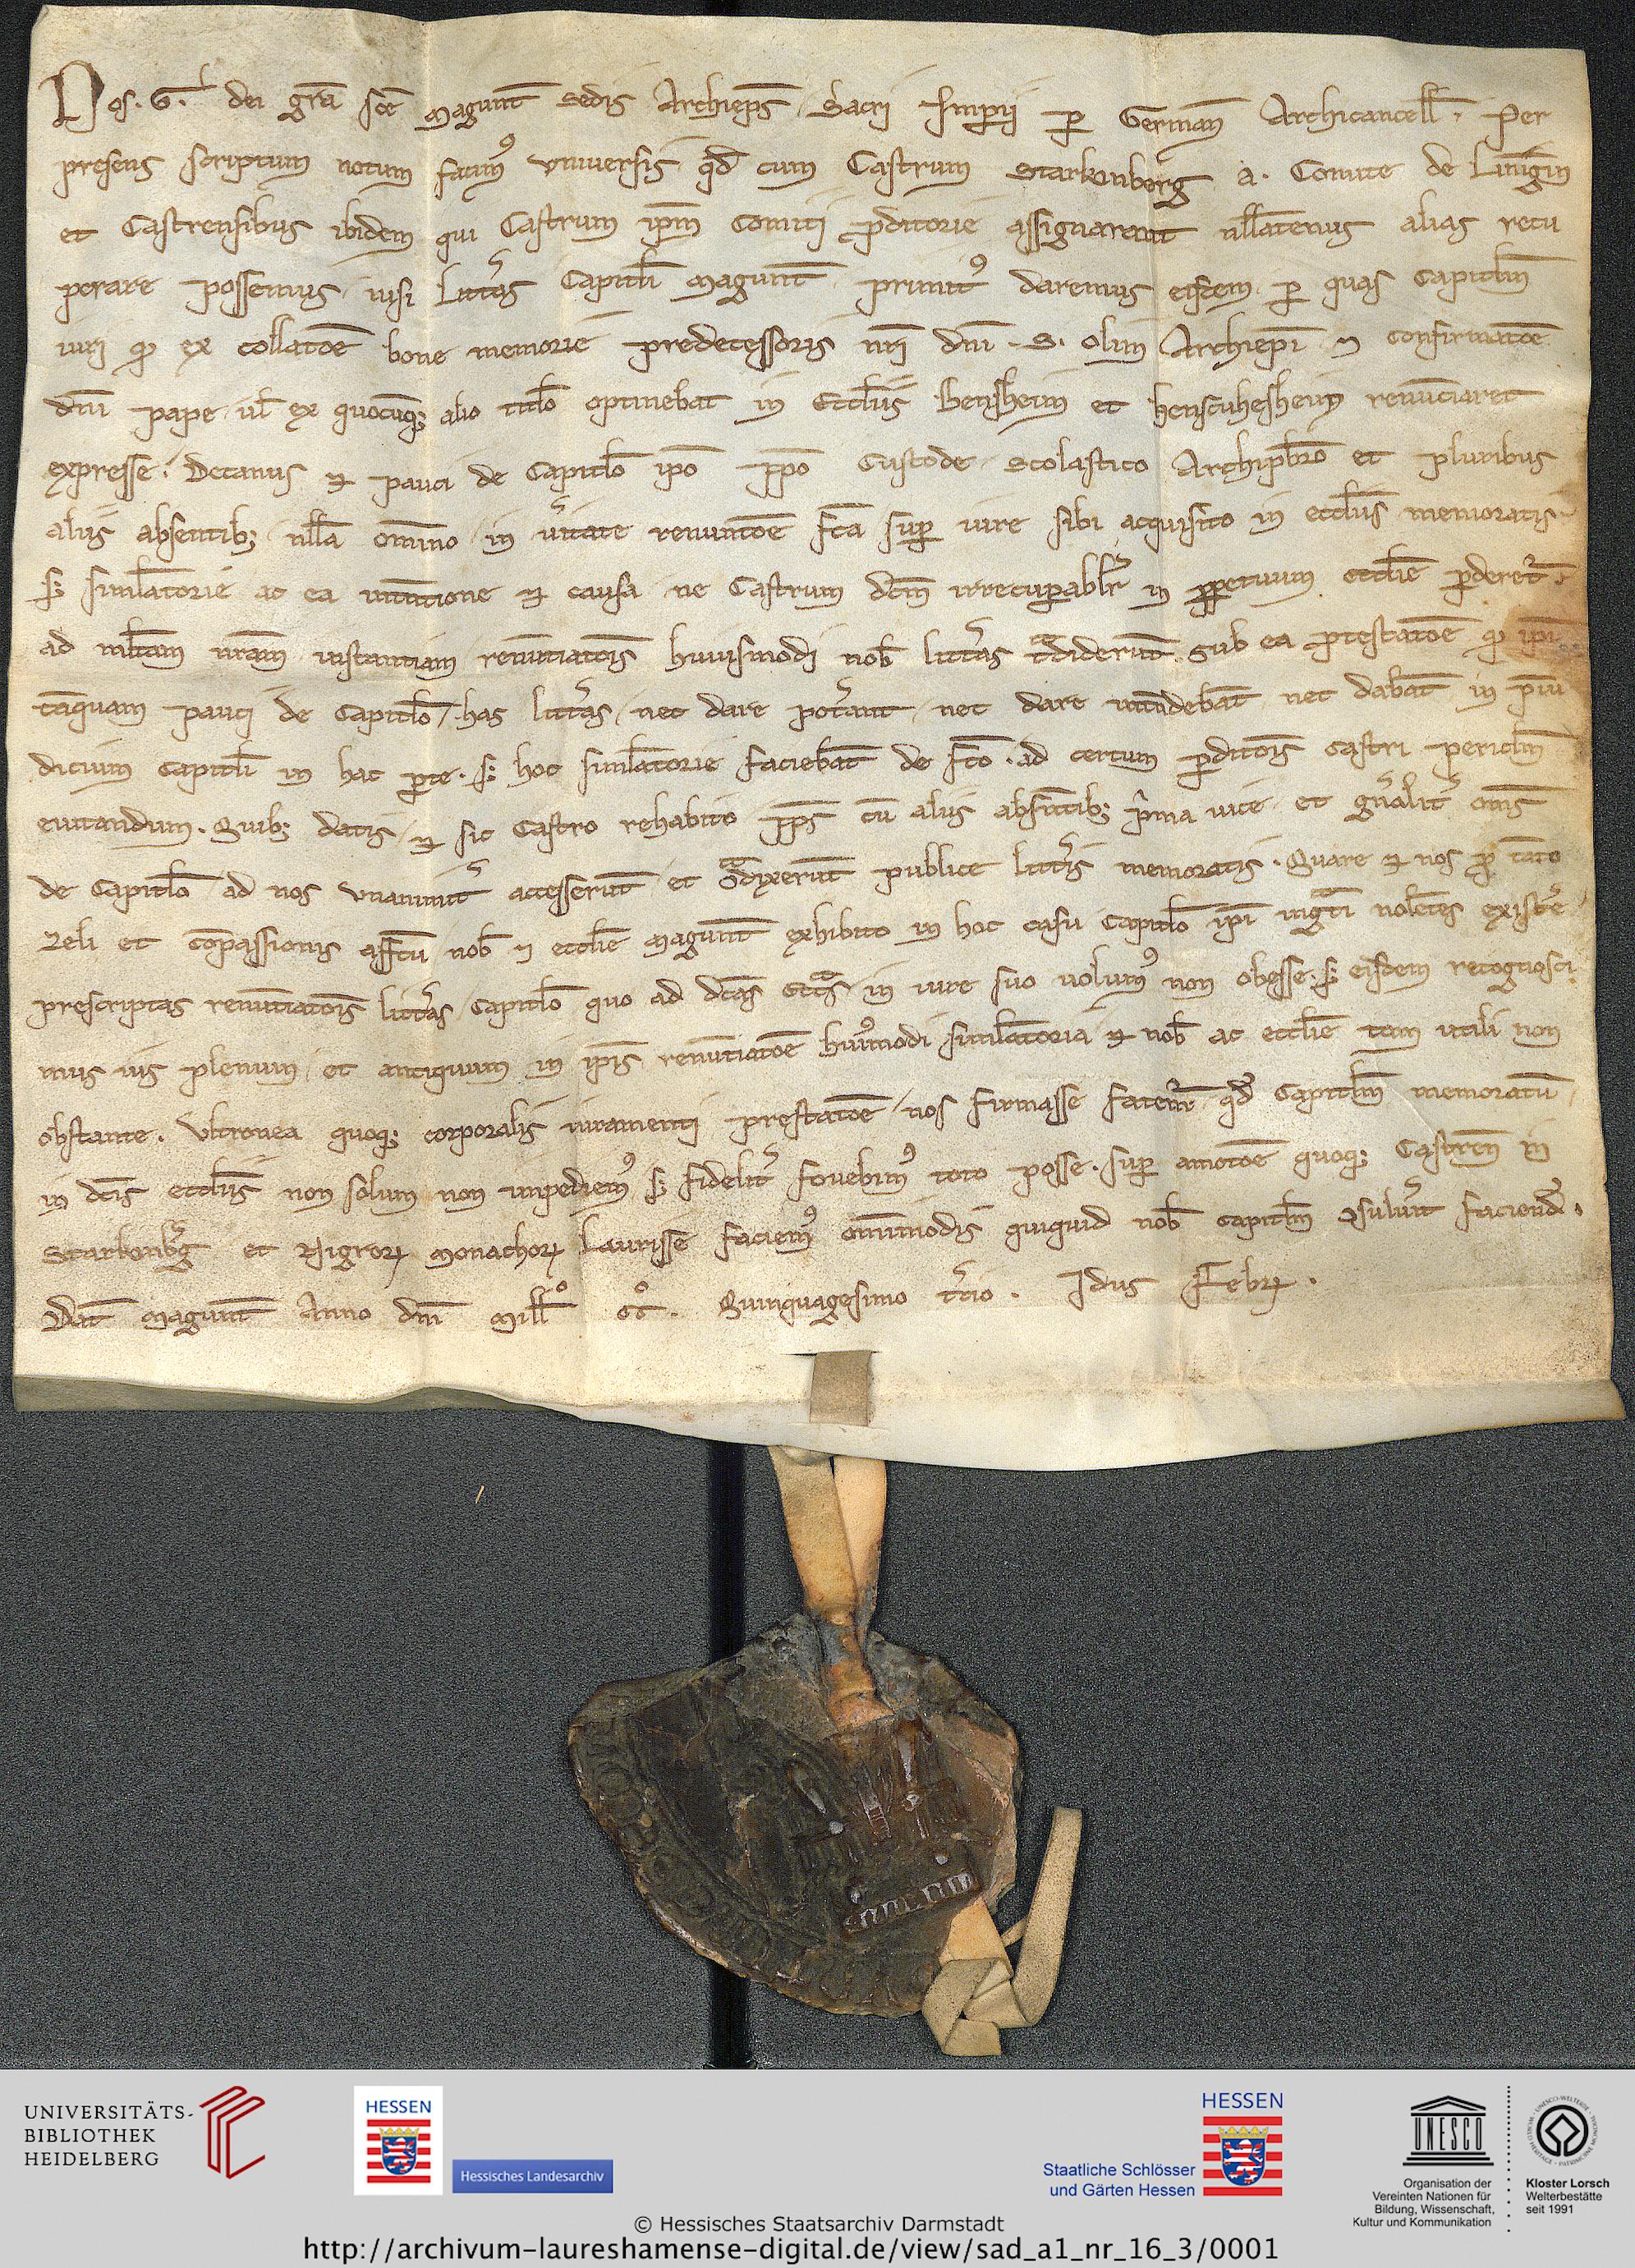 Nos. G. dei gr̄a sc̄e Magunt̄ sedis Archiep̄s Sacri Imp̄ij p̱ Germān Archicancell̄. Per
presens scriptum notum facim⁹ vniuersis qđ cum Castrum Starkinberg a. Comite de Linīgin
et Castrensibus ibidem qui Castrum ip̄m Comiti p̱ditorie assignarant nll̄atenus alias recu
perare possemus nisi litt̄as Capitl̄i Magunt̄ primit⁹ daremus eisdem p̱ quas Capitl̄m
iuri qđ ex collatōe bone memorie predecessoris nr̄i dn̄i .S. olim Archiep̄i ⁊ confirmatōe
dn̄i pape ul̄ ex quocūq; alio titl̄o optinebat in Eccl̄iis Bensheim et henscuhesheim renunciaret
expresse. Decanus ⁊ pauci de Capitl̄o ip̄o pp̄o Custode Scolastico Archipb̄ro et pluribus
aliis absentib; nll̄a omīno in ūitate renuntōe fc̄a sup̱ iure sibi acquisito in eccl̄iis memoratis
s; siml̄atorie ac ea intentione ⁊ causa ne Castrum dc̄m irrecup̱abl̄r in p̱petuum eccl̄ie p̱deret̄.
ad ml̄tam nr̄am instantiam renūtiatōis huiusmodi nob̄ litt̄as t̄diderūt. sub ea protestatōe qđ ip̄i
tāquam pauci de Capitl̄o has litt̄as nec dare pot̄ant nec dare intendebāt nec dabāt in p̄iu
dicium capitl̄i in hac p̱te. s; hoc siml̄atorie faciebāt de fc̄o. ad certum p̱ditōis castri pericl̄m
euitandum. Quib; datis ⁊ sic Castro rehabito pp̄s cū aliis absētib; p̄ma uice et gn̄alit̄ om̄s
de Capitl̄o ad nos vnanimit̄ accesserūt et 9̄dixerūt publice litt̄is memoratis. Quare ⁊ nos p̱ tāto
zeli et cōpassionis affc̄u nob̄ ⁊ eccl̄ie Magunt̄ exhibito in hoc casu Capitl̄o ip̄i ingᵃti nolētes exist̄e
prescriptas renūtiatōis litt̄as Capitl̄o quo ad dc̄as in iure suo uolum⁹ non obesse. s; eisdem recognosci
mus ius plenum et antiquum in ip̄is renūtiatōe hui⁹modi siml̄atoria ⁊ nob̄ ac eccl̄ie tam utili non
obstante. Vltronea quoq; corporalis iuramenti prestatōe nos firmasse fatem̄ qđ Capitl̄m memoratū
in dc̄is eccl̄iis non solum non impediem⁹ s; fidelit̄ fouebim⁹ toto posse. sup̱ amotōe quoq; Castren̄ in
Starkenb̄g et Nigroꝝ Monachoꝝ Laurisse faciem⁹ omnimodis quiquid nob̄ capitl̄m 9suluīt faciend̄.
Dat̄ Magunt̄ Anno dn̄i Mill̄o CC°. Quinquagesimo t̄cio. Idus Febrꝝ.
UNIVERSITÄTS-
BIBLIOTHEK
HEIDELBERG
HESSEN
Hessisches Landesarchiv
HESSEN
Staatliche Schlösser
und Gärten Hessen
UNESCO
Organisation der
Vereinten Nationen für
Bildung, Wissenschaft,
Kultur und Kommunikation
Kloster Lorsch
Welterbestätte
seit 1991
© Hessisches Staatsarchiv Darmstadt
http://archivum-laureshamense-digital.de/view/sad_a1_nr_16_3/0001